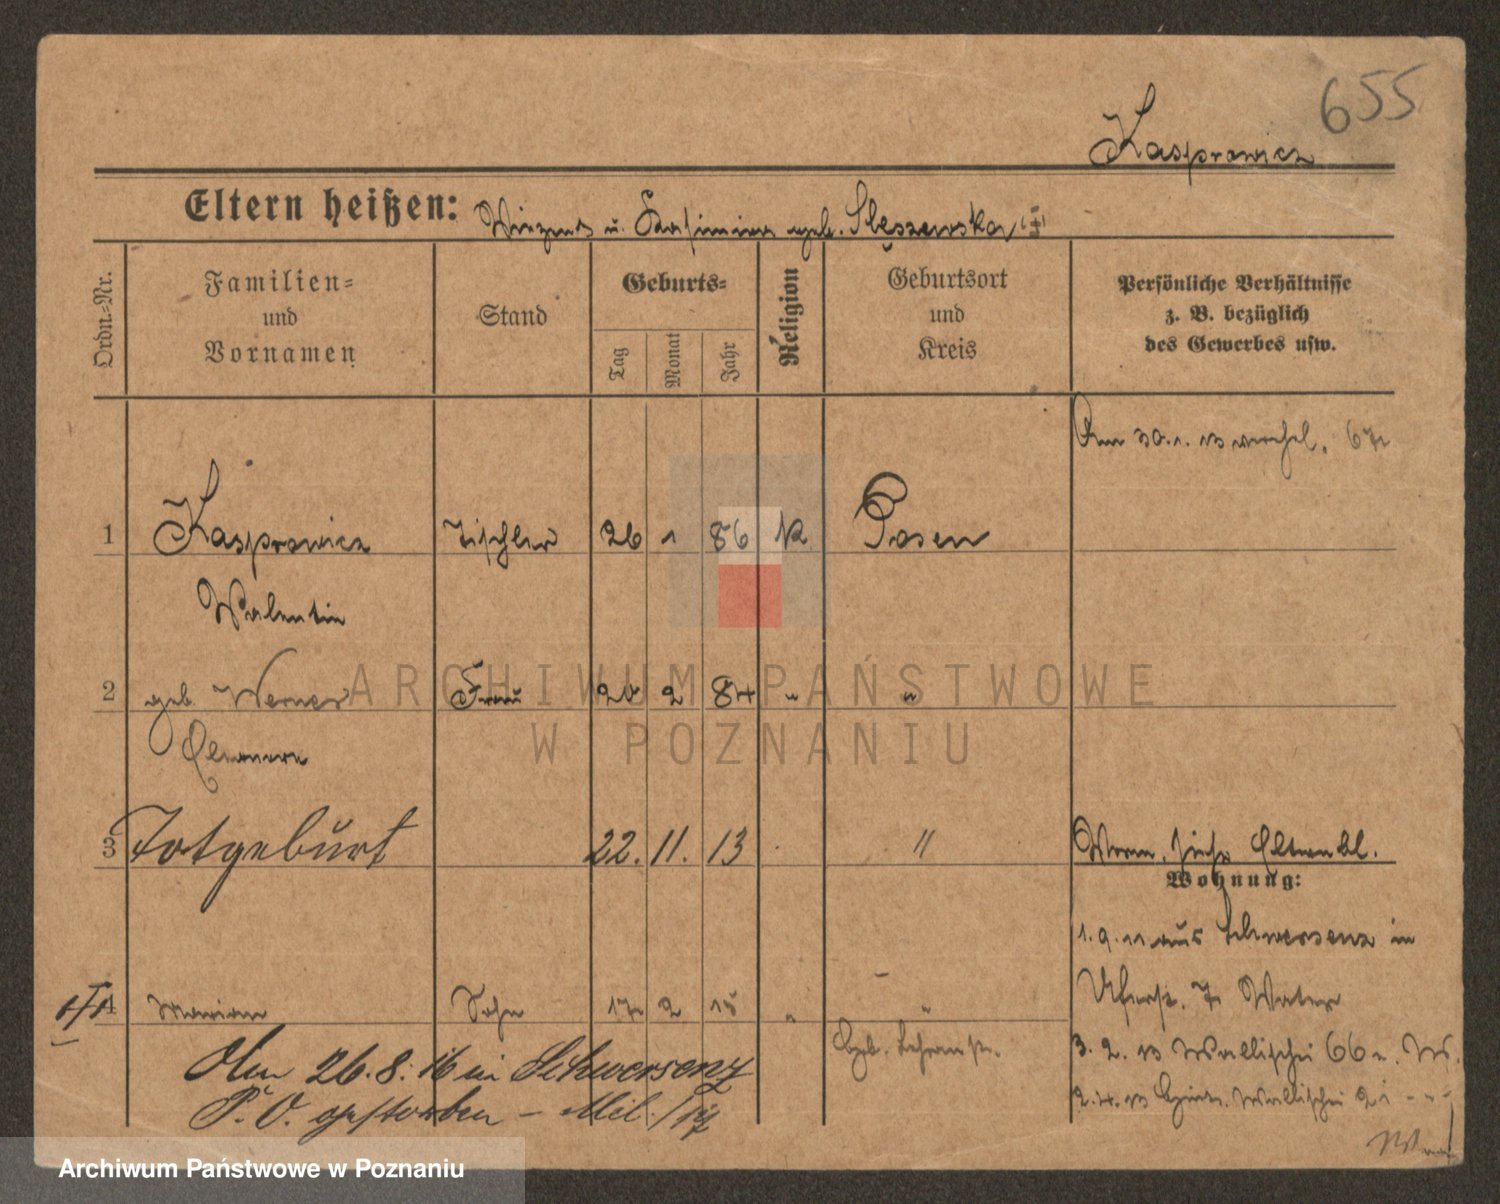 655
Kasprowicz
Eltern heißen: Vinzent u. Kasimira geb. Slęszewska
Ordn.=Nr.
Familien=
und
Vornamen
Stand
Geburts=
Tag
Monat
Jahr
Religion
Geburtsort
und
Kreis
Persönliche Verhältnisse
z. B. bezüglich
des Gewerbes usw.
Am 30.1.13 verehel.
1 Kasprowicz Tischler 26 1 86 K Posen
Valentin
2 geb. Werner Frau 20 2 84 " "
Eleonora
3 Totgeburt 22. 11. 13 "
Wohnung:
1.9.11 aus Schwersenz in
4 Marian Sohn 17 2 15 " "
3.2.13 Wallischei 66
Am 26.8.16 in Schwersenz
P. O. gestorben – Mil.
2.4.13 Wallischei
ARCHIWUM PAŃSTWOWE
W POZNANIU
Archiwum Państwowe w Poznaniu